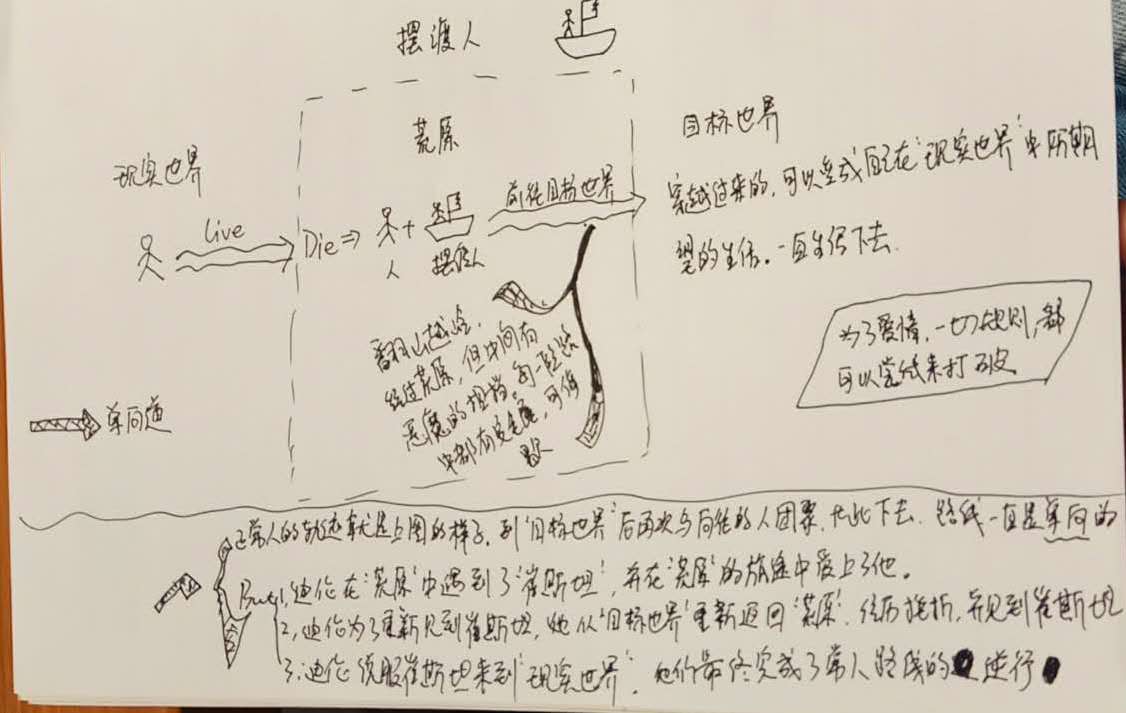 摆渡人
荒原
目标世界
现实世界
穿越过来的,可以变成自己在“现实世界”中所期
望的生活。一直生活下去.
Live
Die⇒
+
前往目标世界
人
摆渡人
翻山越岭.
经过荒原,但中间有
恶魔的阻挡。每一段路
中都有安全屋,可停
歇
为了爱情,一切规则,都
可以尝试来打破
单向道
正常人的轨迹就是上图的样子.到“目标世界”后再次与同伴的人团聚.大此下去.路线一直是单向的
But 1,迪伦在“荒原”中遇到了“崔斯坦”,并在“荒原”的旅途中爱上了他。
2,迪伦为了重新见到崔斯坦,她从“目标世界”重新返回“荒原”.经历挫折.并见到崔斯坦
3.迪伦说服崔斯坦来到“现实世界”.他们最终完成了常人路线的逆行